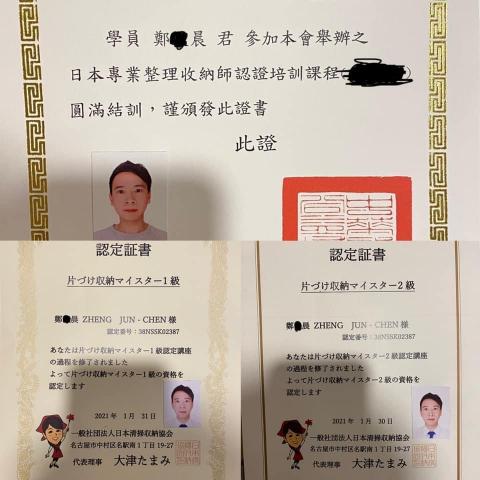 學員 鄭 晨 君 參加本會舉辦之
日本專業整理收納師認證培訓課程
圓滿結訓，謹頒發此證書
此證
認定証書
片づけ収納マイスター1級
鄭 晨 ZHENG JUN-CHEN 様
認定番号：38NSSK02387
あなたは片づけ収納マイスター1級認定講座
の過程を修了されました
よって片づけ収納マイスター1級の資格を
認定します
2021年 1月 31日
一般社団法人日本清掃収納協会
名古屋市中村区名駅南1丁目19-27
代表理事 大津たまみ
認定証書
片づけ収納マイスター2級
鄭 晨 ZHENG JUN-CHEN 様
認定番号：38NSSK02387
あなたは片づけ収納マイスター2級認定講座
の過程を修了されました
よって片づけ収納マイスター2級の資格を
認定します
2021年 1月 30日
一般社団法人日本清掃収納協会
名古屋市中村区名駅南1丁目19-27
代表理事 大津たまみ